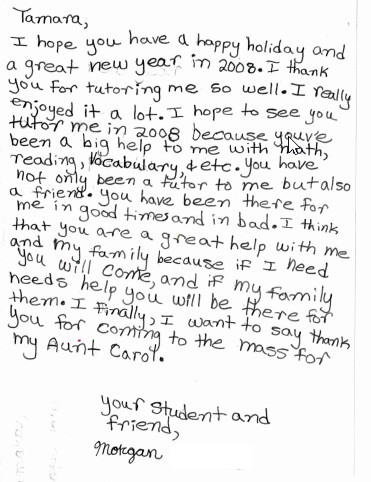 Tamara,
I hope you have a happy holiday and
a great new year in 2008. I thank
you for tutoring me so well. I really
enjoyed it a lot. I hope to see you
tutor me in 2008 because youv'e
been a big help to me with math,
reading, Vocabulary, & etc. You have
not only been a tutor to me but also
a friend. You have been there for
me in good times and in bad. I think
that you are a great help with me
and my family because if I need
you will come, and if my family
needs help you will be there for
them. I finally, I want to say thank
you for coming to the mass for
my Aunt Carol.
your student and
friend,
Morgan